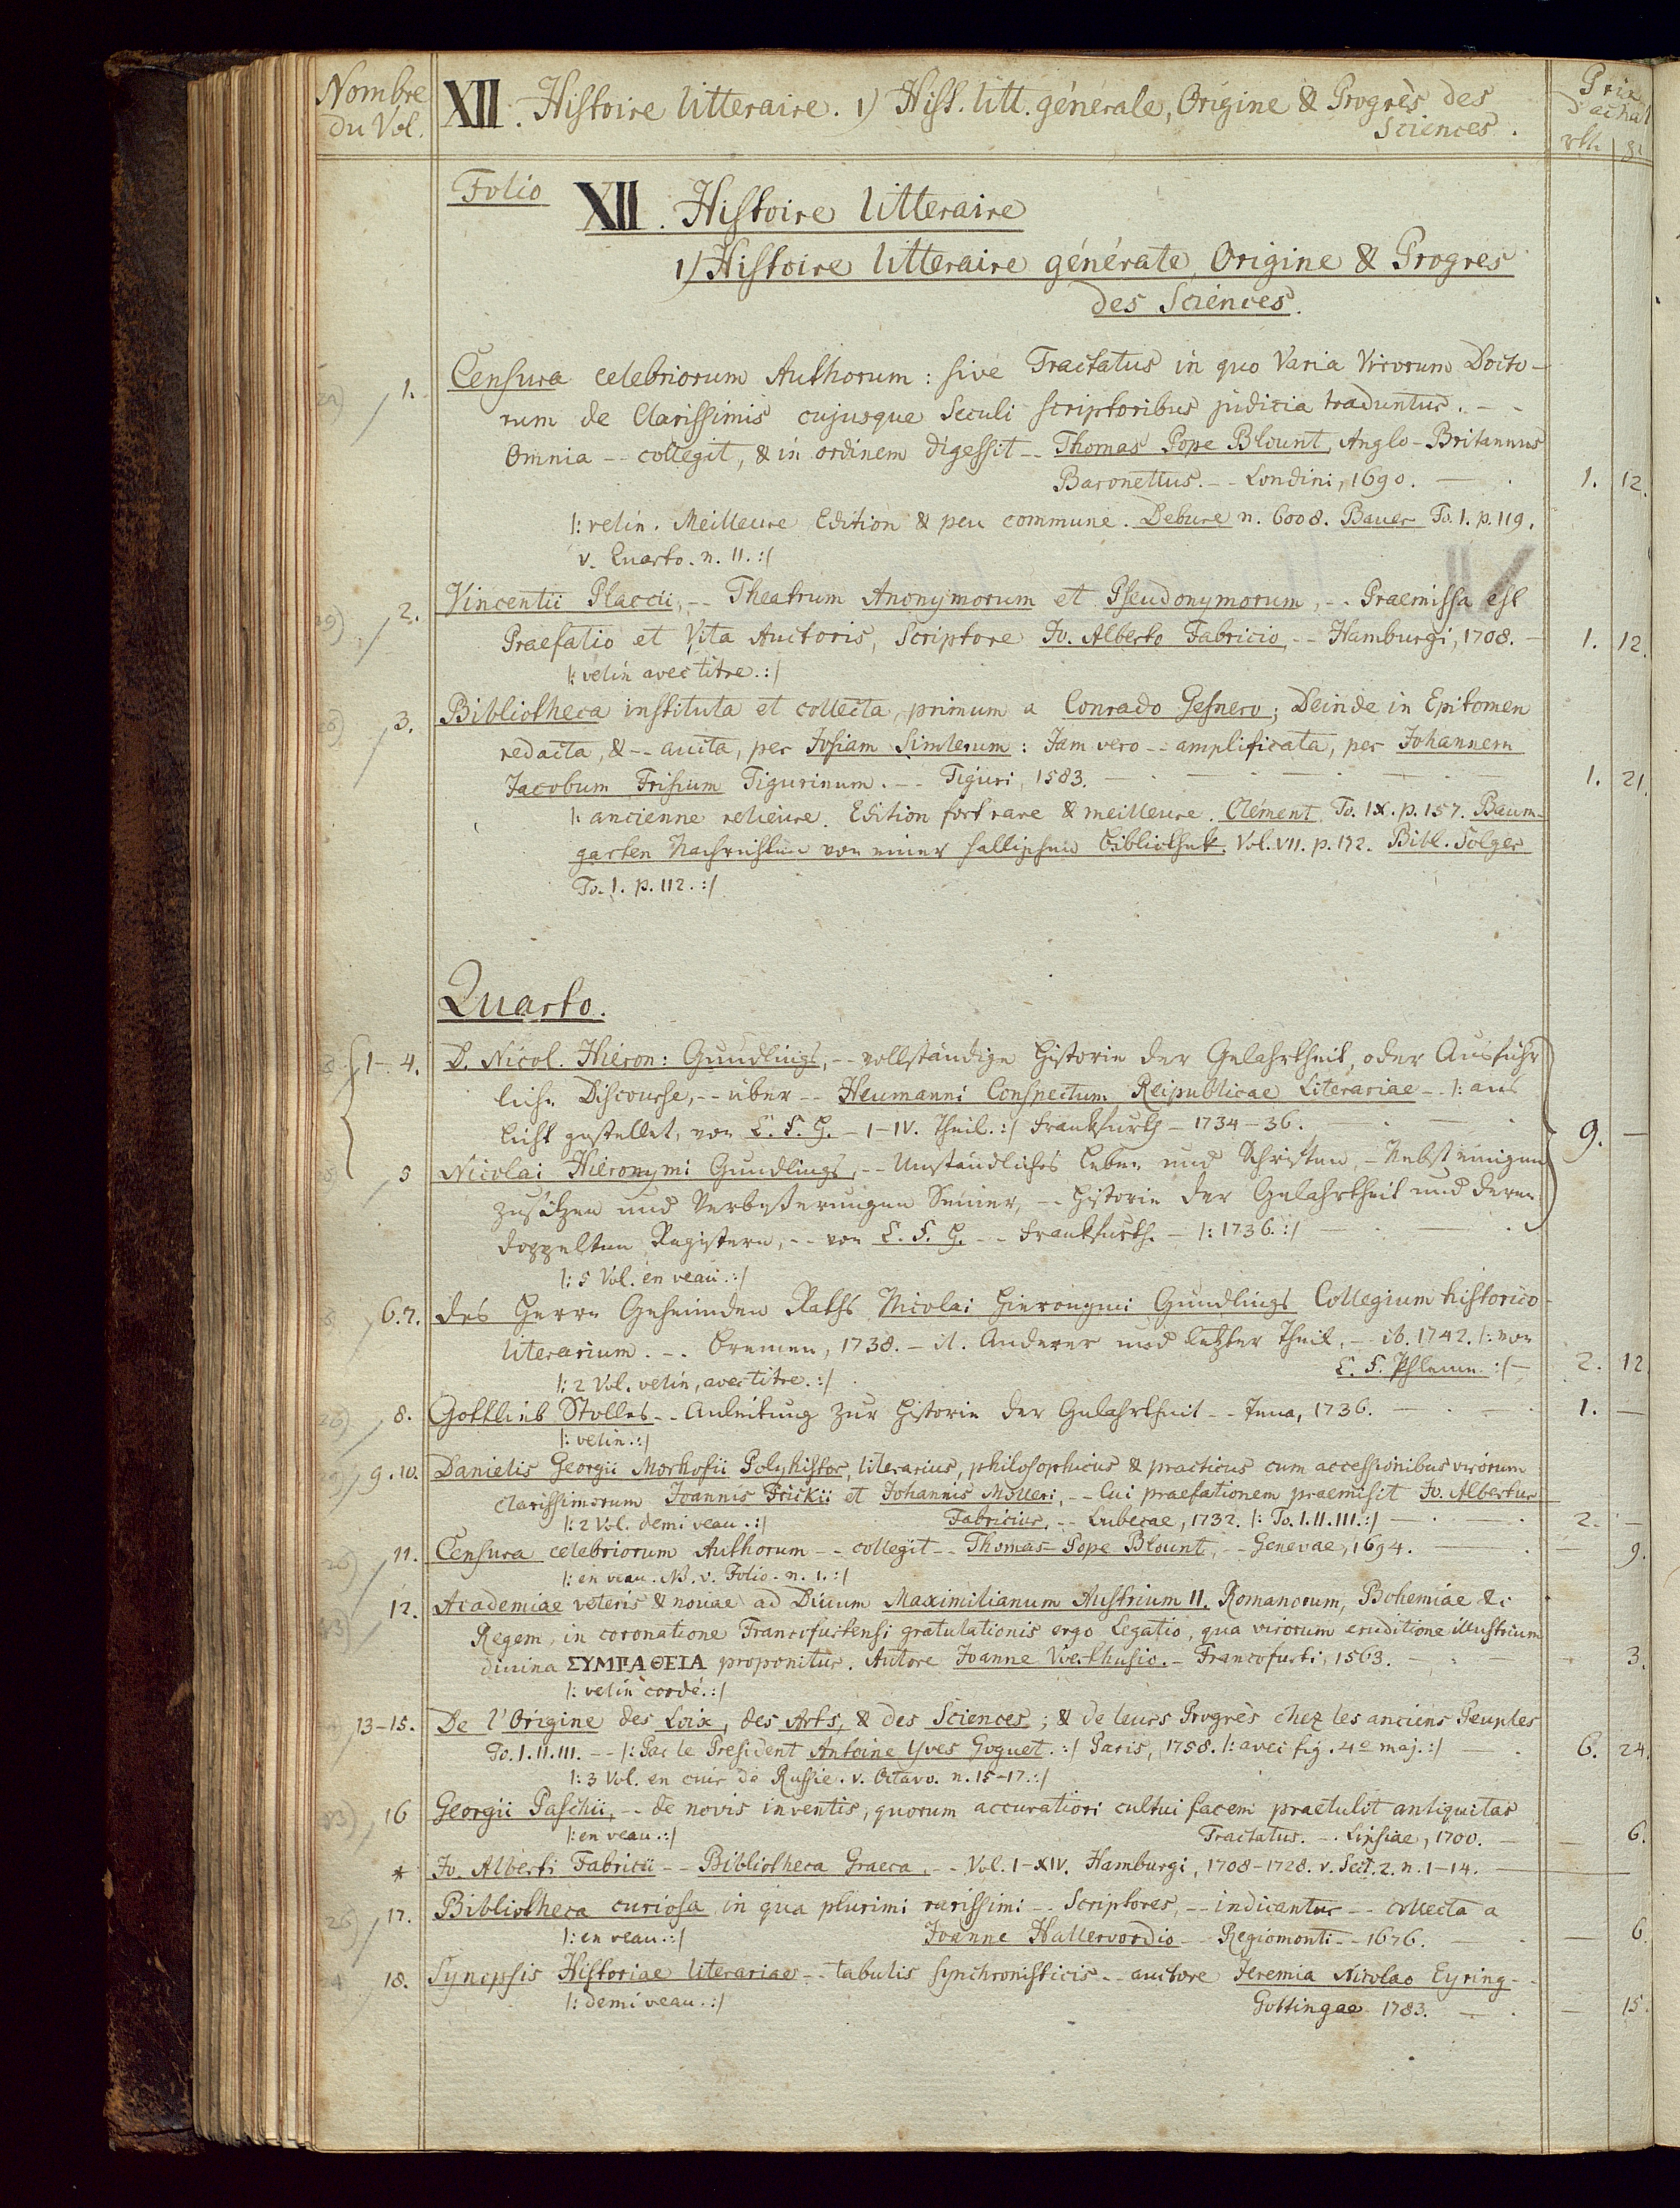 Nombre
du Vol.
XII. Histoire litteraire. 1) Hist. litt. générale, Origine & Progrès des
Sciences.
Prix
d'achat
rth. gr.
Folio
XII. Histoire litteraire
1) Histoire litteraire générale, Origine & Progres
des Sciences.
1. Censura celebriorum Authorum: sive Tractatus in quo Varia Virorum Docto-
rum de Clarissimis cujusque Seculi scriptoribus judicia traduntur. --
Omnia -- collegit, & in ordinem digessit -- Thomas Pope Blount, Anglo-Britannus
Baronettus. -- Londini, 1690. — 1. 12.
|: velin. Meilleure Edition & peu commune. Debure n. 6008. Bauer To. 1. p. 119.
v. Quarto. n. 11. :|
2. Vincentii Placcii, -- Theatrum Anonymorum et Pseudonymorum, -- Praemissa est
Praefatio et Vita Auctoris, Scriptore Jo. Alberto Fabricio -- Hamburgi, 1708. — 1. 12.
|: velin avec titre. :|
3. Bibliotheca instituta et collecta, primum a Conrado Gesnero; Deinde in Epitomen
redacta, & -- aucta, per Josiam Simlerum: Jam vero -- amplificata, per Johannem
Jacobum Frisium Tigurinum. -- Tiguri, 1583. — 1. 21.
|: ancienne relieure. Edition fort rare & meilleure. Clément To. IX. p. 157. Baum-
garten Nachrichten von einer hallischen Bibliothek. Vol. VII. p. 172. Bibl. Solger
To. 1. p. 112. :|
Quarto.
1-4. D. Nicol. Hieron: Gundlings, -- vollständige Historie der Gelahrtheit, oder Ausführ
liche Discourse, -- über -- Heumanni Conspectum Reipublicae Literariae -- |: ans
Licht gestellet, von C. F. H. - I-IV. Theil. :| Frankfurth - 1734-36. — 9. —
5 Nicolai Hieronymi Gundlings, -- Umständliches Leben und Schriften, - Nebst einigen
Zusätzen und Verbesserungen Seiner, -- Historie der Gelahrtheit und deren
doppelten Registern, -- von C. F. H. -- Frankfurth. - |: 1736. :|
|: 5 Vol. en veau. :|
6.7. des Herrn Geheimden Raths Nicolai Hieronymi Gundlings Collegium historico-
literarium. -- Bremen, 1738. - it. Anderer und letzter Theil, -- ib. 1742. |: von
|: 2 Vol. velin, avec titre. :| :| — 2. 12
8. Gottlieb Stolles -- Anleitung zur Historie der Gelahrtheit -- Jena, 1736. — 1. —
|: velin. :|
9.10. Danielis Georgii Morhofii Polyhistor, literarius, philosophicus & practicus cum accessionibus virorum
clarissimorum Joannis Frickii et Johannis Molleri, -- Cui praefationem praemisit Jo. Albertus
|: 2 Vol. demi veau. :| Fabricius, -- Lubecae, 1732. |: To. I. II. III. :| — 2. —
11. Censura celebriorum Authorum -- collegit -- Thomas Pope Blount, -- Genevae, 1694. — 9.
|: en veau. NB. v. Folio. n. 1. :|
12. Academiae veteris & novae ad Divum Maximilianum Austrium II. Romanorum, Bohemiae &c
Regem, in coronatione Francofurtensi gratulationis ergo Legatio, qua virorum eruditione illustrium
divina ΣΥΜΠΑΘΕΙΑ proponitur. Autore Joanne -- Francofurti, 1563. — 3.
|: velin cordé. :|
13-15. De l'Origine des Loix, des Arts, & des Sciences; & de leurs Progrès chez les anciens Peuples
To. I. II. III. -- |: Par le President Antoine Yves Goguet. :| Paris, 1758. |: avec fig. 4º maj. :| — 6. 24.
|: 3 Vol. en cuir de Russie. v. Octavo. n. 15-17. :|
16 Georgii Paschii, -- de novis inventis, quorum accuratiori cultui facem praetulit antiquitas
|: en veau. :| Tractatus. -- Lipsiae, 1700. — 6.
* Jo. Alberti Fabricii -- Bibliotheca Graeca, -- Vol. I-XIV. Hamburgi, 1708-1728. v. Sect. 2. n. 1-14. —
17. Bibliotheca curiosa in qua plurimi rarissimi -- Scriptores, -- indicantur -- collecta a
|: en veau. :| Joanne Hallervordio -- Regiomonti -- 1676. — 6.
18. Synopsis Historiae literariae -- tabulis synchronisticis -- auctore Jeremia Nicolao Eyring --
|: demi veau. :| Gottingae 1783. — 15.